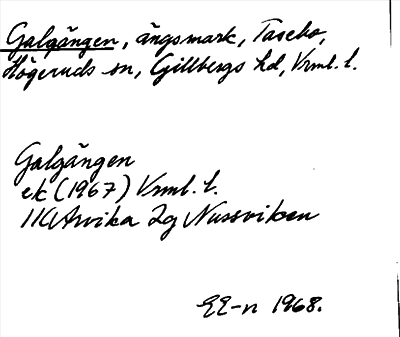 Galgängen, ängsmark, Tasebo,
Högeruds sn, Gillbergs hd, Vrml. l.
Galgängen
ek (1967) Vrml. l.
11C Arvika 2g Nussviken
EE-n 1968.